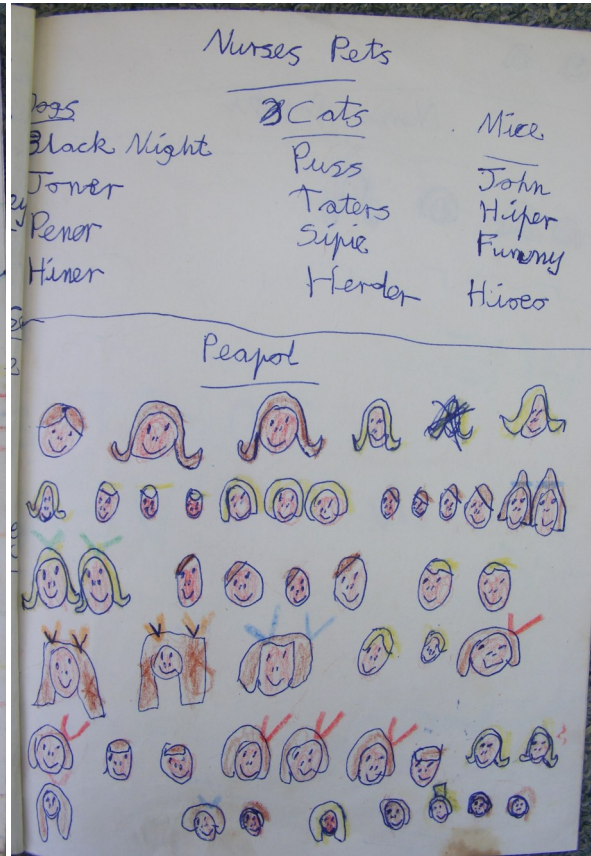 Nurses Pets
Dogs
Black Night
Joner
Penor
Hiner
Cats
Puss
Taters
Sipie
Herder
Mice
John
Hiper
Funny
Peapol